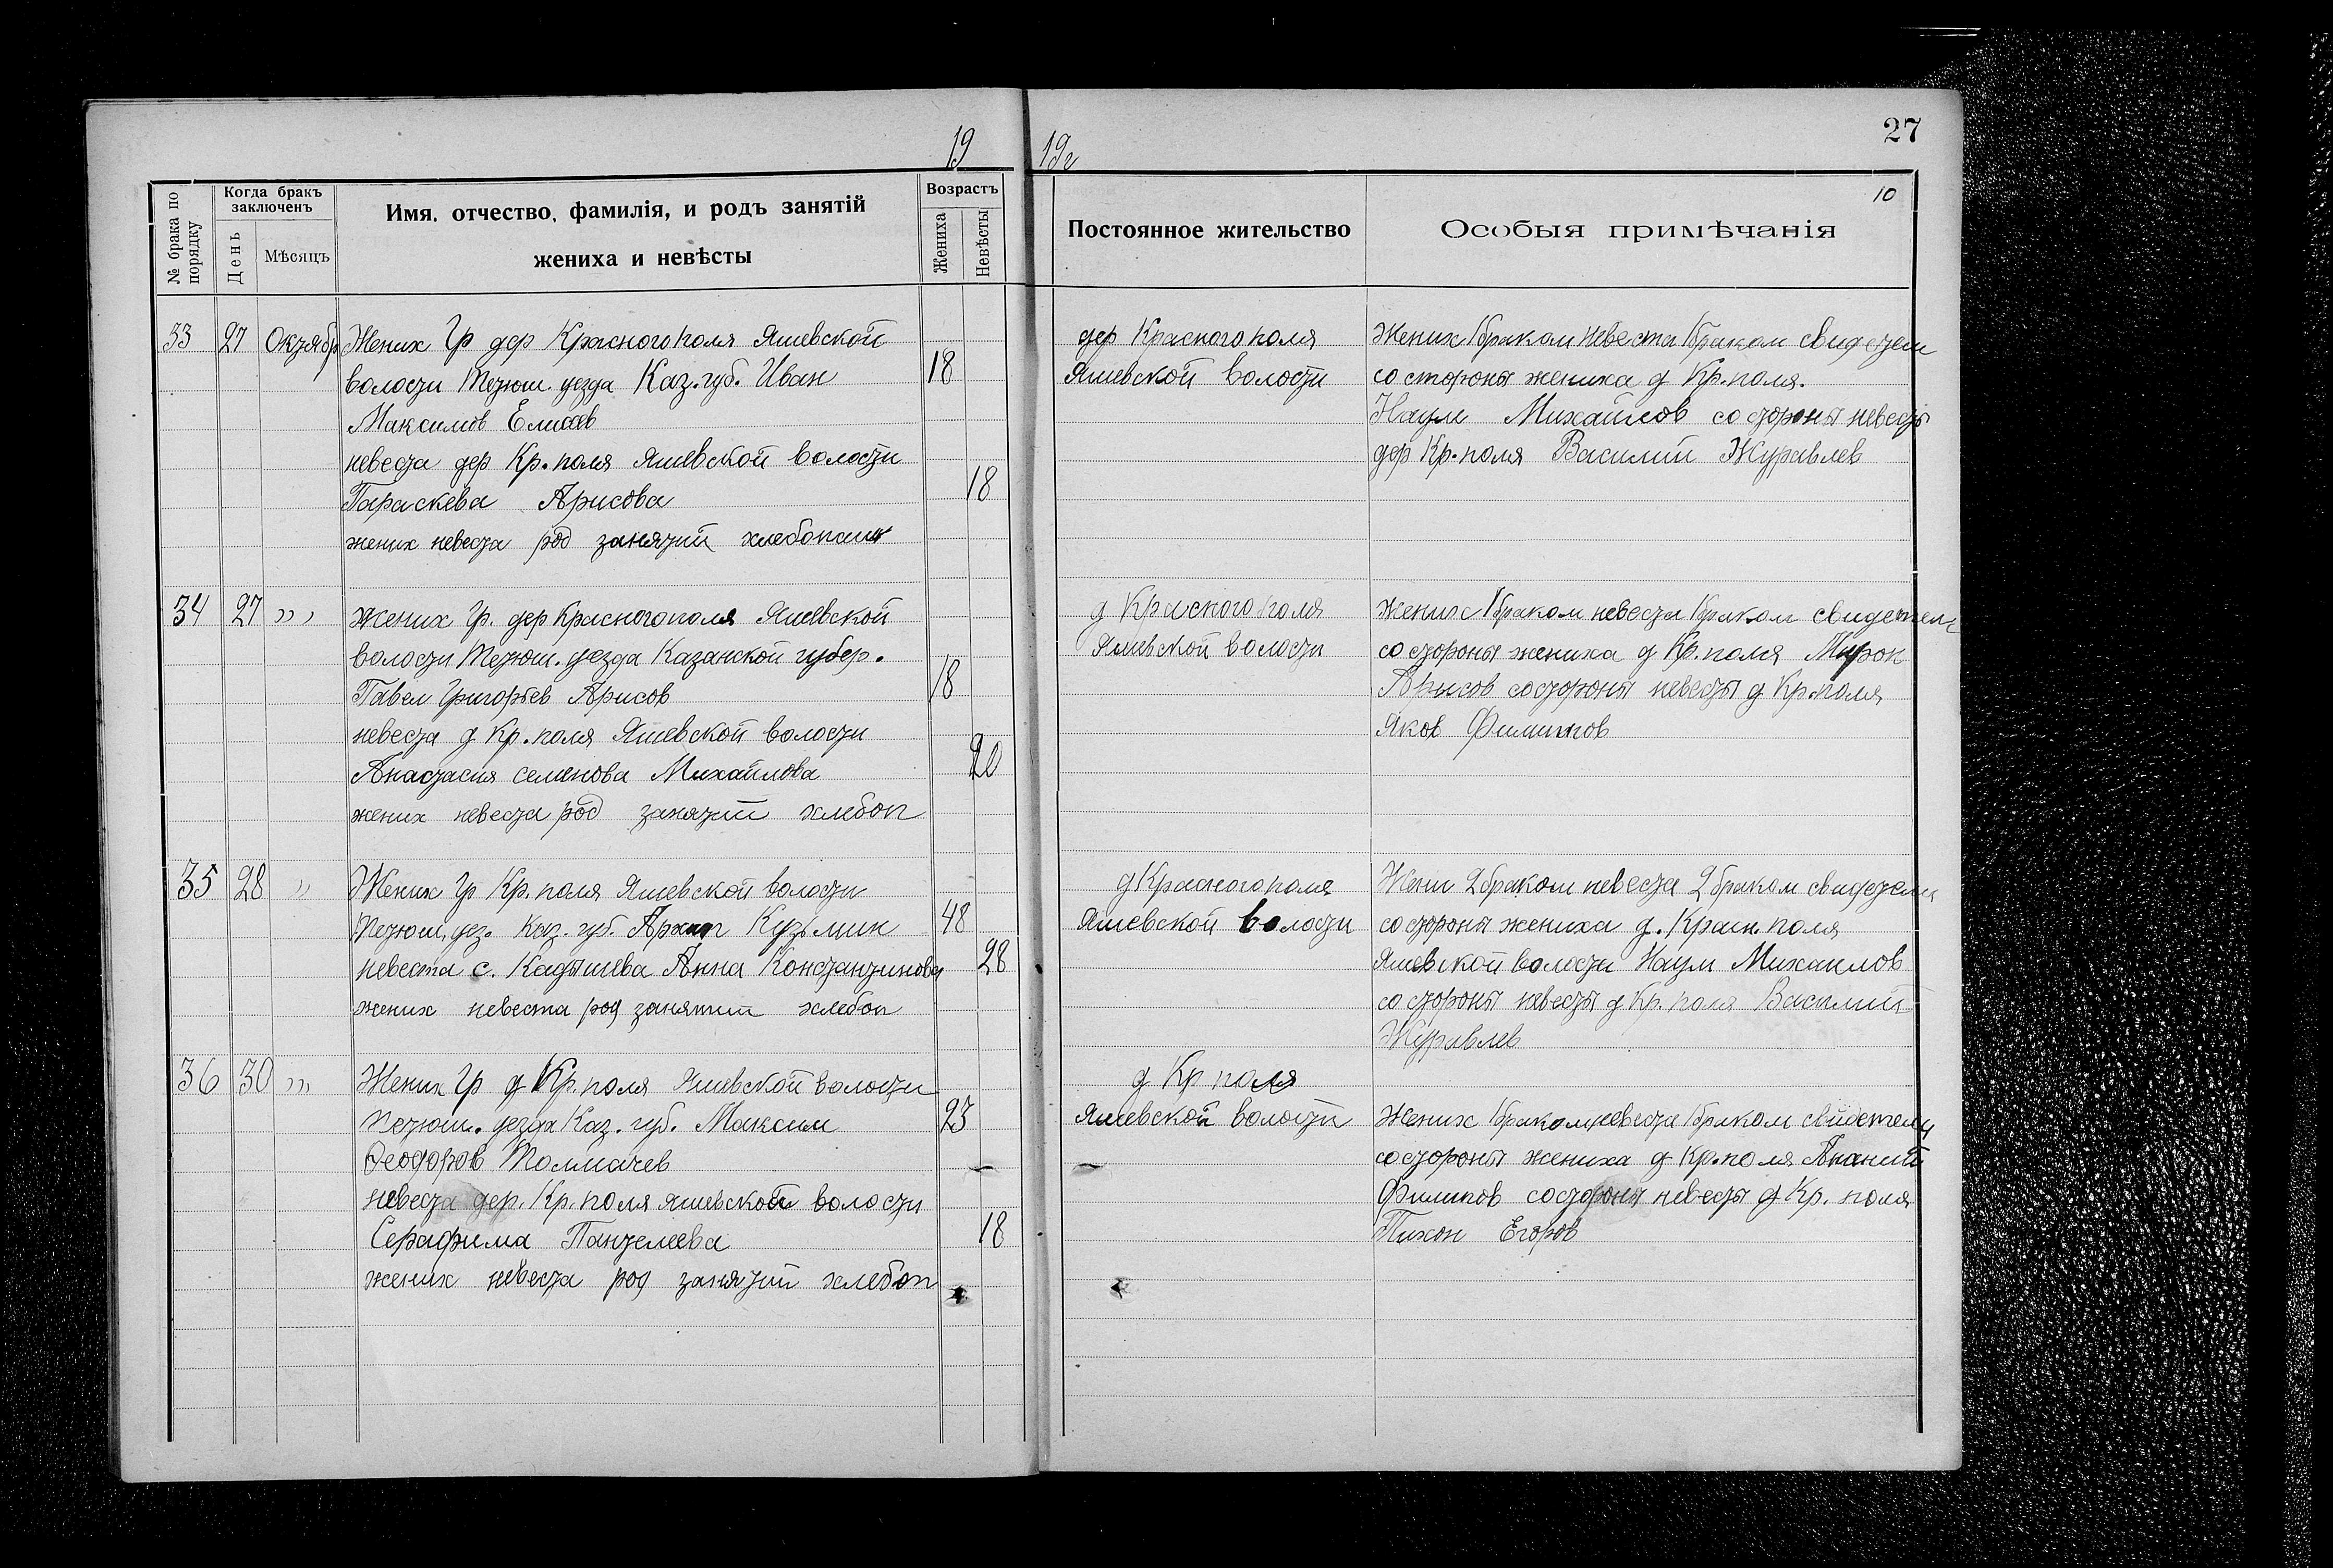 27
19
19г
10
№ брака по порядку
Когда бракъ заключенъ
День
Мѣсяцъ
Имя, отчество, фамилія, и родъ занятій
жениха и невѣсты
Возрастъ
Жениха
Невѣсты
Постоянное жительство
Особыя примѣчанія
33 27 Октябр Жених Гр дер Красного поля Яшевской
волости Тетюш. уезда Каз. губ. Иван 18
Максимов Елисеев
невеста дер Кр. поля Яшевской волости
Параскева Арисова 18
жених невеста род занятий хлебопаш
дер Красного поля
Яшевской волости
Жених 1 браком невеста 1 браком свидетели
со стороны жениха д Кр. поля.
Наум Михайлов со стороны невесты
дер Кр. поля Василий Журавлев
34 27 " Жених Гр. дер Красного поля Яшевской
волости Тетюш. уезда Казанской губер.
Павел Григорьев Арисов 18
невеста д Кр. поля Яшевской волости
Анастасия Семенова Михайлова 20
жених невеста род занятий хлебоп
д Красного поля
Яшевской волости
Жених 1 браком невеста 1 браком свидетели
со стороны жениха д Кр. поля Мирон
Арисов со стороны невесты д Кр. поля
Яков Филипов
35 28 " Жених Гр Кр. поля Яшевской волости
Тетюш. уез. Каз. губ. Архип Кузьмин 48
невеста с. Кадышева Анна Константинова 28
жених невеста род занятий хлебоп
д Красного поля
Яшевской волости
Жених 2 браком невеста 2 браком свидетели
со стороны жениха д. Красн. поля
Яшевской волости Наум Михаилов
со стороны невесты д Кр. поля Василий
Журавлев
36 30 " Жених Гр д Кр. поля Яшевской волости
Тетюш. уезда Каз. губ. Максим 23
Феодоров Толмачев
невеста дер. Кр. поля Яшевской волости
Серафима Пантелеева 18
жених невеста род занятий хлебоп
д Кр поля
Яшевской волости
Жених 1 браком невеста 1 браком свидетели
со стороны жениха д Кр. поля Ананий
Филипов со стороны невесты д Кр. поля
Тихон Егоров